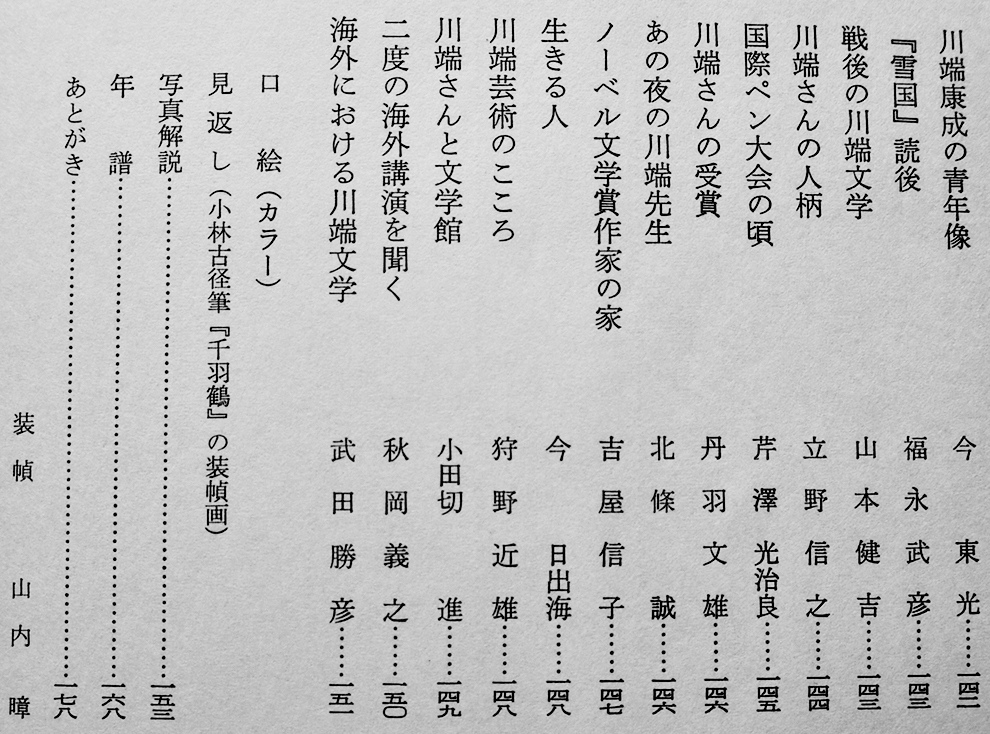 川端康成の青年像 今東光……一四二
『雪国』読後 福永武彦……一四三
戦後の川端文学 山本健吉……一四三
川端さんの人柄 立野信之……一四四
国際ペン大会の頃 芹澤光治良……一四五
川端さんの受賞 丹羽文雄……一四六
あの夜の川端先生 北條誠……一四六
ノーベル文学賞作家の家 吉屋信子……一四七
生きる人 今日出海……一四八
川端芸術のこころ 狩野近雄……一四八
川端さんと文学館 小田切進……一四九
二度の海外講演を聞く 秋岡義之……一五〇
海外における川端文学 武田勝彦……一五一
口絵（カラー）
見返し（小林古径筆『千羽鶴』の装幀画）
写真解説……一五三
年譜……一六八
あとがき……一七八
装幀 山内暲